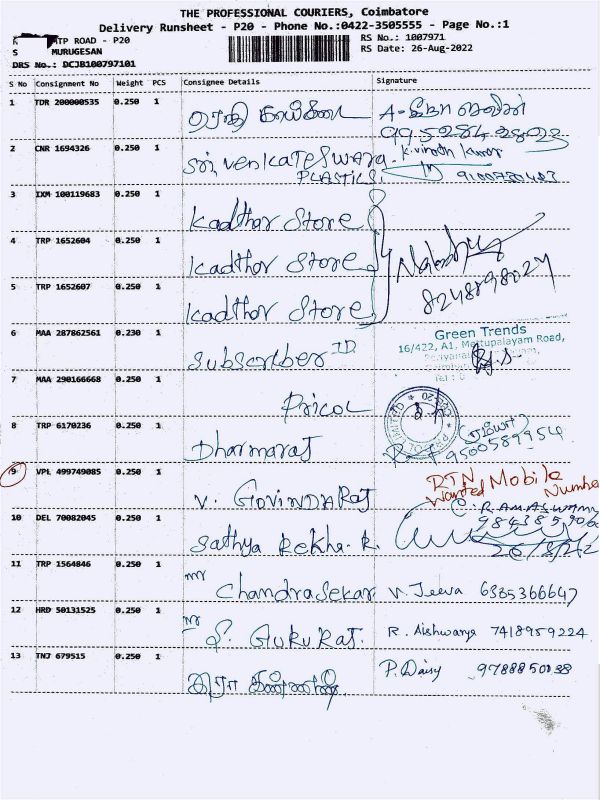 THE PROFESSIONAL COURIERS, Coimbatore
Delivery Runsheet - P20 - Phone No.:0422-3505555 - Page No.:1
MTP ROAD - P20
RS No.: 1007971
S MURUGESAN
RS Date: 26-Aug-2022
DRS No.: DCJB100797101
S No Consignment No Weight PCS Consignee Details Signature
1 TDR 200000535 0.250 1
2 CNR 1694326 0.250 1 Sri Venkateswara K. Vinoth Kumar
PLASTICS.
3 IXM 100119683 0.250 1 Kadthor Store
4 TRP 1652604 0.250 1 Kadthor Store
8248898027
5 TRP 1652607 0.250 1 Kadthor Store
Green Trends
16/422, A1, Mettupalayam Road,
6 MAA 287862561 0.230 1 Subscriber ID
7 MAA 290166668 0.250 1 Pricol
8 TRP 6170236 0.250 1 Dharmaraj 9500589954
9 VPL 499749085 0.250 1 V. GOVINDARAJ RTN Mobile
Wanted Number
10 DEL 70082045 0.250 1 Sathya Rekha. R. C. RAMASWAMY
26/8/22
11 TRP 1564846 0.250 1 mr Chandrasekar V. Jeeva 6385366647
12 HRD 50131525 0.250 1 mr S. GURURAJ. R. Aishwarya 7418959224
13 TNJ 679515 0.250 1 P. Daisy